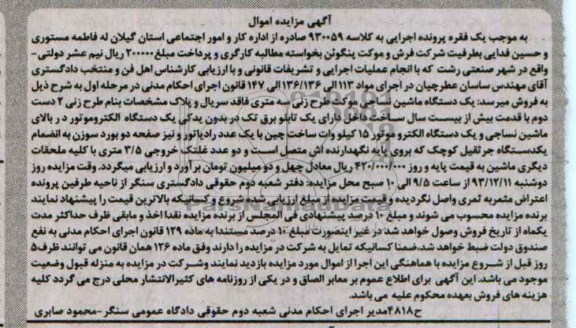 آگهی مزایده اموال
به موجب یک فقره پرونده اجرایی به کلاسه ۹۳۰۰۵۹ صادره از اداره کار و امور اجتماعی استان گیلان له فاطمه مستوری
و حسین فدایی بطرفیت شرکت فرش و موکت پنگوئن بخواسته مطالبه کارگری و پرداخت مبلغ ۲۰۰۰۰۰ ریال نیم عشر دولتی-
واقع در شهر صنعتی رشت که با انجام عملیات اجرایی و تشریفات قانونی و با ارزیابی کارشناس اهل فن و منتخب دادگستری
آقای مهندس ساسان عطرچیان در اجرای مواد ۱۱۳ الی ۱۳۶/۱۳۶الی ۱۴۷ قانون اجرای احکام مدنی در مرحله اول به شرح ذیل
به فروش میرسد: یک دستگاه ماشین نساجی موکت طرح زنی سه متری فاقد سریال و پلاک مشخصات بنام طرح زنی ۲ دست
دوم با قدمت بیش از بیست سال ساخت داخل دارای یک تابلو برق تک در بدون یدکی یک دستگاه الکتروموتور در بالای
ماشین نساجی و یک دستگاه الکترو موتور ۱۵ کیلو وات ساخت چین با یک عدد رادیاتور و نیز صفحه دو بورد سوزن به انضمام
یکدستگاه جرثقیل کوچک که بروی پایه نگهدارنده اش متصل است و دو عدد غلتک خروجی ۳/۵ متری با کلیه ملحقات
دیگری ماشین به قیمت پایه و روز ۴۲۰/۰۰۰/۰۰۰ ریال معادل چهل و دو میلیون تومان برآورد و ارزیابی میگردد. وقت مزایده روز
دوشنبه ۹۳/۱۲/۱۱ از ساعت ۹/۵ الی ۱۰ صبح محل مزایده: دفتر شعبه دوم حقوقی دادگستری سنگر از ناحیه طرفین پرونده
اعتراض مثمربه ثمری واصل نگردیده وقیمت پایه از مبلغ ارزیابی شده شروع و کسانیکه بالاترین قیمت را پیشنهاد نمایند
برنده مزایده محسوب می شوند و مبلغ ۱۰ درصد پیشنهادی فی المجلس از برنده مزایده نقدا اخذ و مابقی ظرف حداکثر مدت
یکماه از تاریخ فروش وصول خواهد شد در غیر اینصورت مبلغ ۱۰ درصد مستندا به ماده ۱۲۹ قانون اجرای احکام مدنی به نفع
صندوق دولت ضبط خواهد شد.ضمنا کسانیکه تمایل به شرکت در مزایده را دارند وفق ماده ۱۲۶ همان قانون می توانند ظرف ۵
روز قبل از شروع مزایده با هماهنگی این اجرا از اموال مورد مزایده بازدید نمایند وشرکت در مزایده به منزله قبول وضعیت
موجود می باشد. این آگهی برای اطلاع عموم بر معابر الصاق و در یکی از روزنامه های کثیرالانتشار محلی درج می گردد کلیه
هزینه های فروش بعهده محکوم علیه می باشد.
ح۴۸۱۸مدیر اجرای احکام مدنی شعبه دوم حقوقی دادگاه عمومی سنگر-محمود صابری